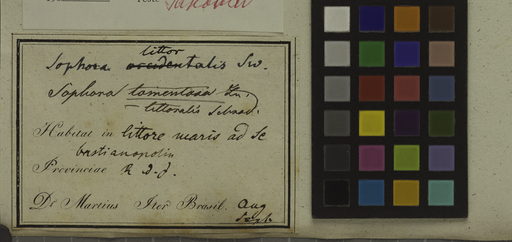 littor
Sophora occidentalis Sw.
Sophora tomentosa Lin.
littoralis Schrad.
Habitat in littore maris ad Se
bastianopolin
Provinciae R. d. J.
De Martius Iter Brasil. Aug
Sept.